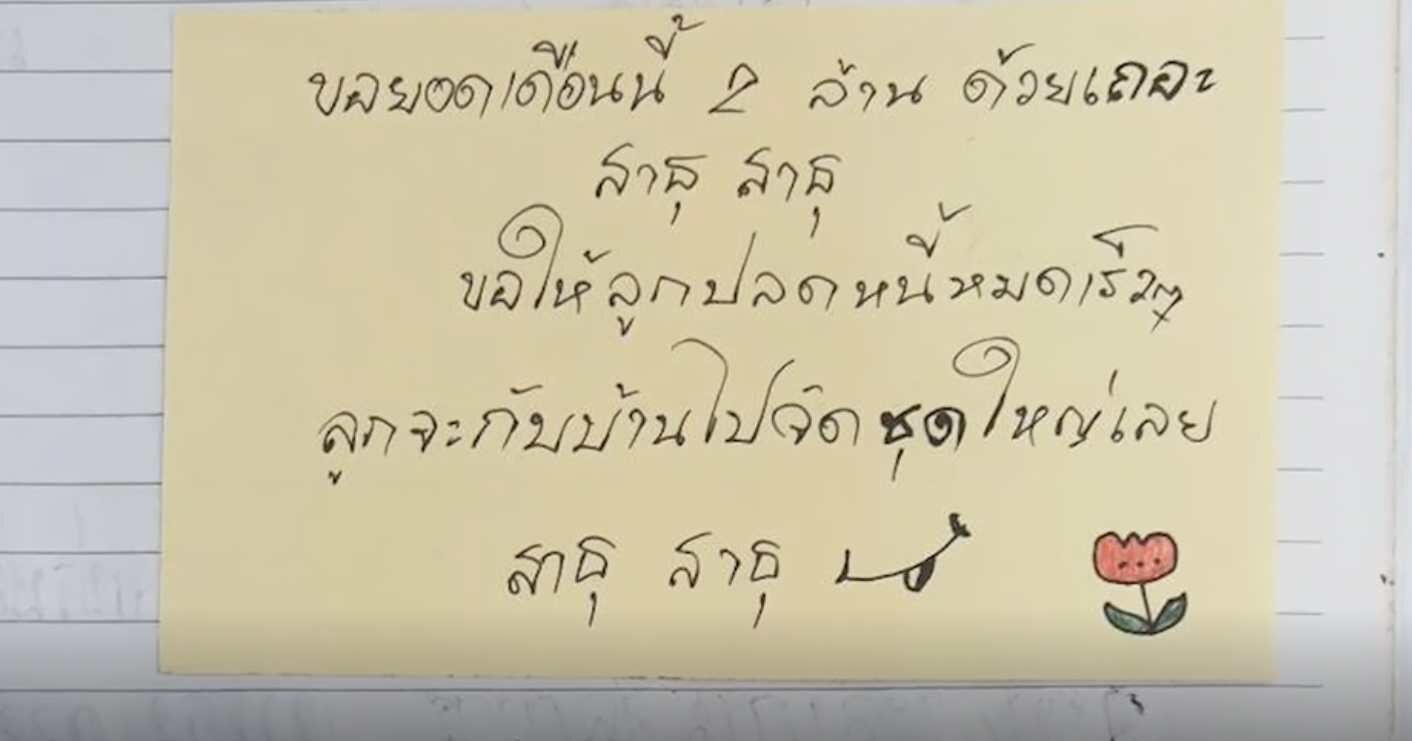 ขอยอดเดือนนี้ 2 ล้าน ด้วยเถอะ
สาธุ สาธุ
ขอให้ลูกปลดหนี้หมดเร็วๆ
ลูกจะกับบ้านไปจัดชุดใหญ่เลย
สาธุ สาธุ